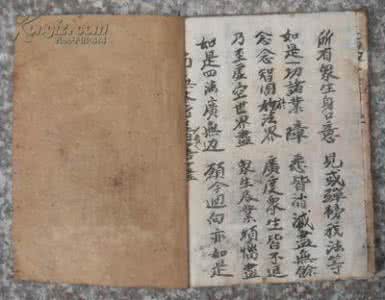 所有衆生身口意 見或彈謗我法等
如是切諸業障 悉皆消滅盡無餘
念念智周於法界 廣度衆生皆不退
乃至虛空世界盡 衆生及業煩惱盡
如是四法廣無边 願今迴向亦如是
南無